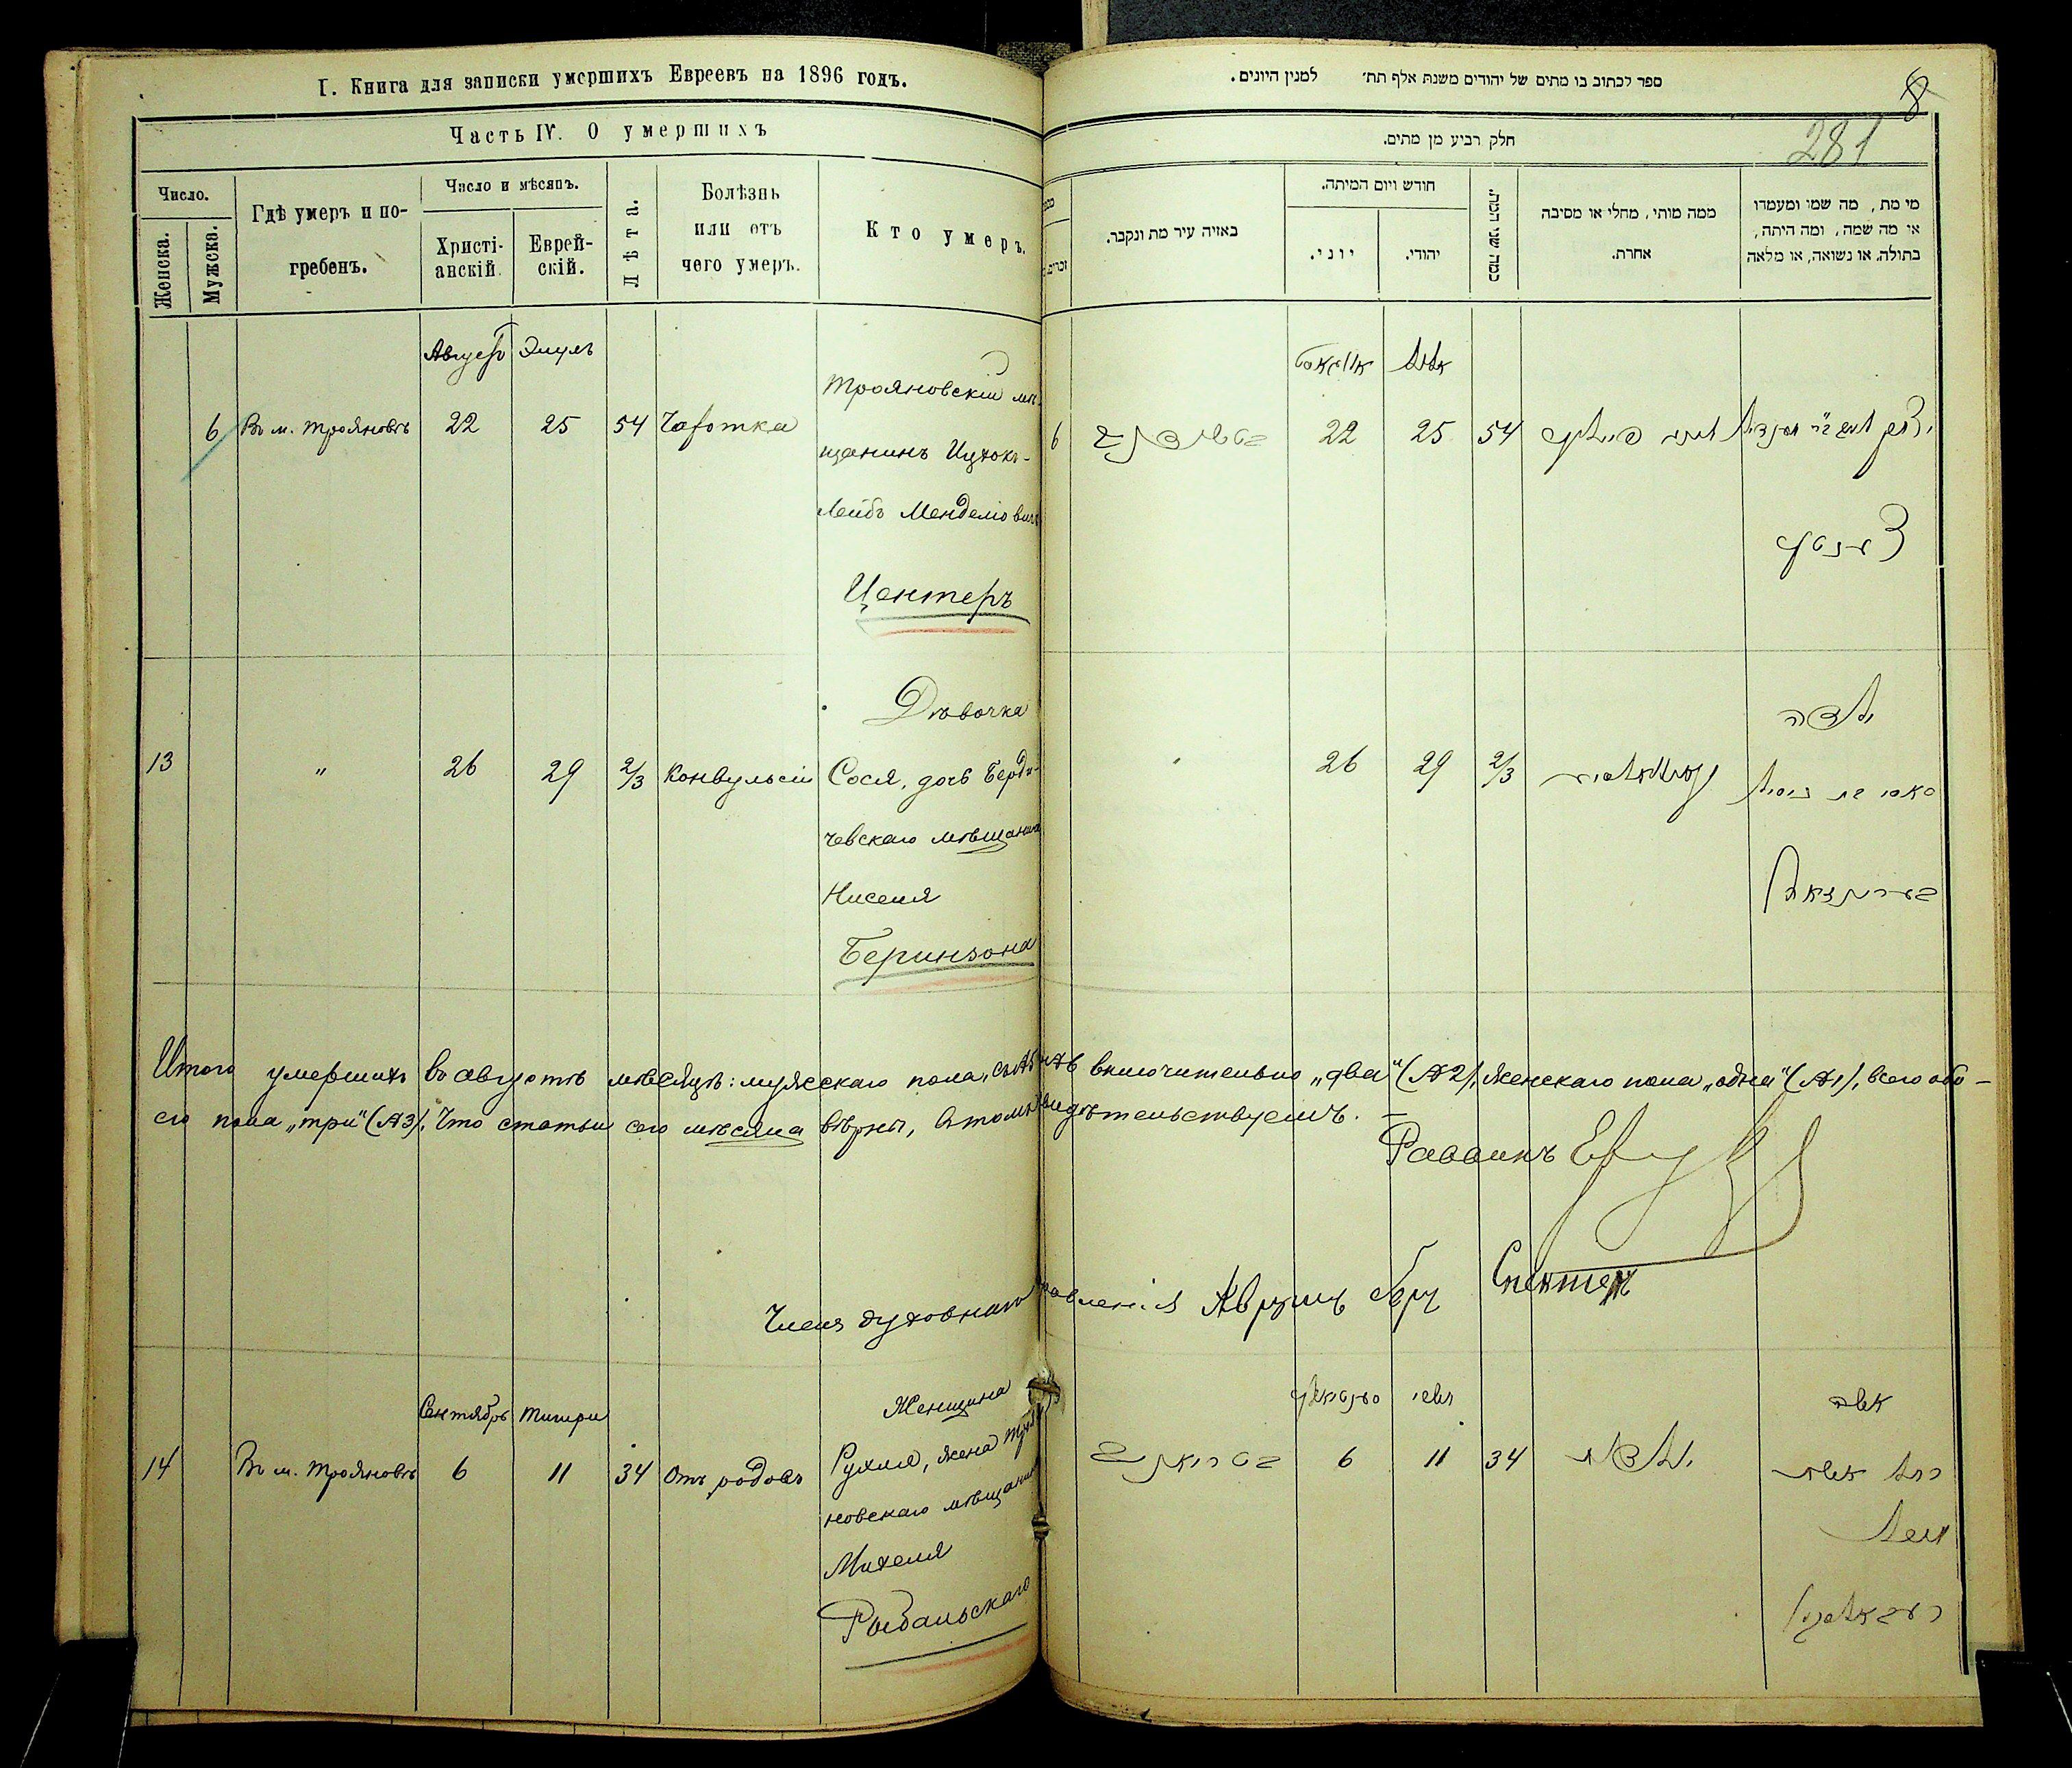 I. Книга для записки умершихъ Евреевъ на 1896 годъ.
Часть IV. О умершихъ
Число.
Женска.
Мужска.
Гдѣ умеръ и по-
гребенъ.
Число и мѣсяцъ.
Христі-
анскій.
Еврей-
скій.
Лѣта.
Болѣзнь
или отъ
чего умеръ.
Кто умеръ.
Августъ Элулъ
6 Въ м. Трояновѣ 22 25 54 Чахотка
Трояновскій мѣ-
щанинъ Ицхокъ-
Лейбъ Менделіовичъ
Центеръ
Дѣвочка
13 " 26 29 2/3 Конвульсіи Сося, дочь Берди-
чевскаго мѣщанина
Нисеня
Беринзона
Итого умершихъ въ августѣ мѣсяцѣ: мужескаго пола,
включительно „два" (№2), женскаго пола „одна" (№1), всего обо-
его пола „три" (№3). Что статьи сего мѣсяца вѣрны, въ томъ свидѣтельствуемъ. –
Раввинъ
Членъ духовнаго правленія Аврумъ Бер Спектеръ
Сентябрь Тишри
Женщина
14 Въ м. Трояновѣ 6 11 34 Отъ родовъ Рухля, жена Троя-
новскаго мѣщанина
Михеля
Рыбальскаго
ספר לכתוב בו מתים של יהודים משנת אלף תת׳ למנין היונים.
8
281
חלק רביע מן מתים.
באיזה עיר מת ונקבר.
חודש ויום המיתה.
יוני.
יהודי.
כמה שני חייו.
ממה מותי, מחלי או מסיבה
אחרת.
מי מת, מה שמו ומעמדו
או מה שמה, ומה היתה,
בתולה. או נשואה, או מלאה
אויגוסט אלול
6 22 25 54
צענטער
ילדה
26 29 2/3
בערינזאן
תשרי
אשה
6 11 34
רחל אשת
מיכל
ריבאלסקי